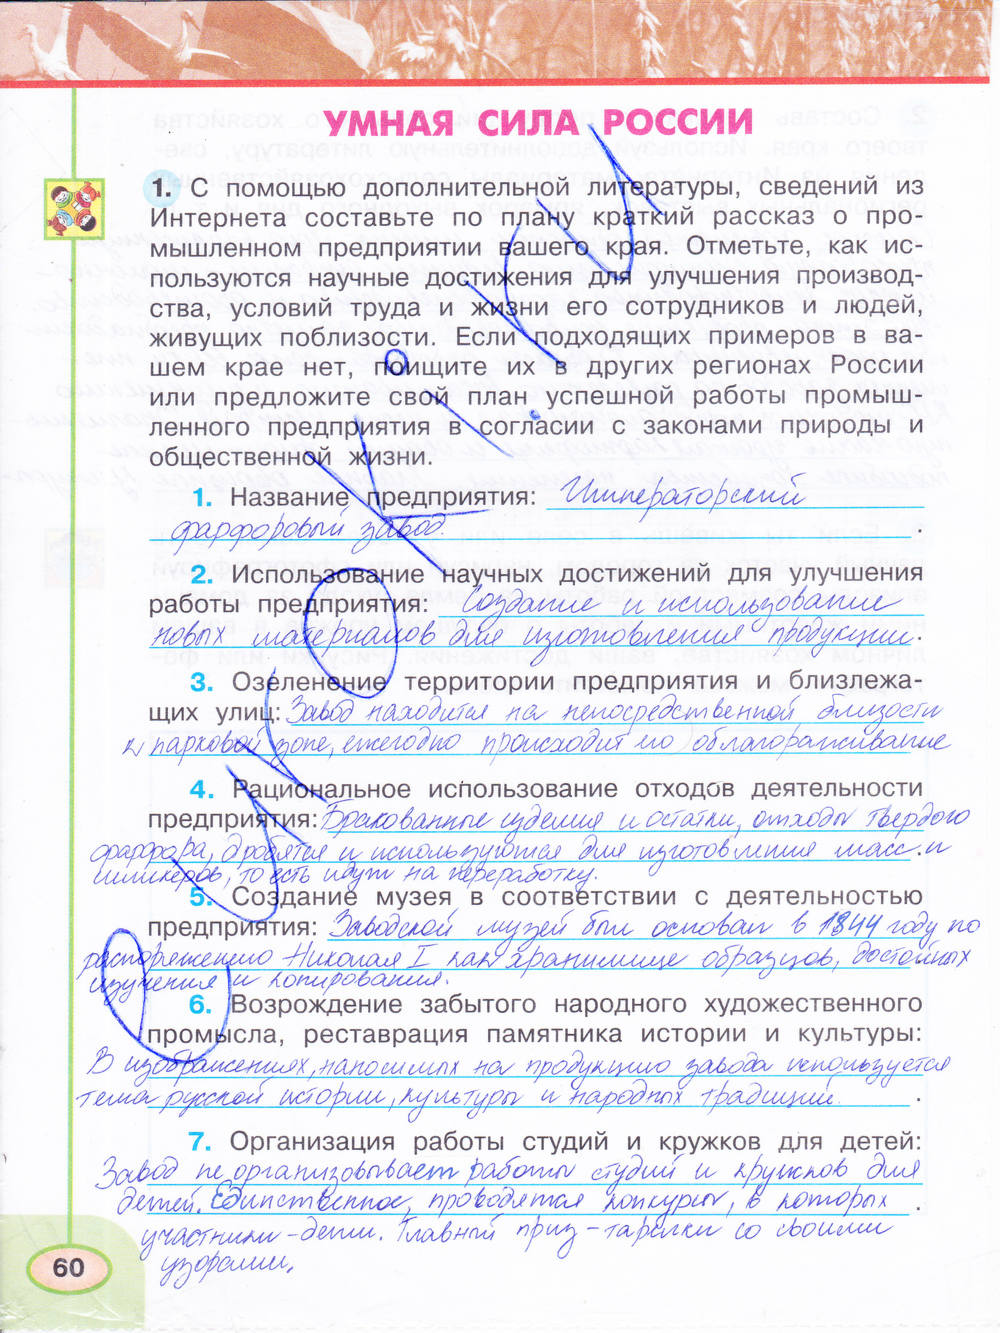 УМНАЯ СИЛА РОССИИ
1. С помощью дополнительной литературы, сведений из
Интернета составьте по плану краткий рассказ о про-
мышленном предприятии вашего края. Отметьте, как ис-
пользуются научные достижения для улучшения производ-
ства, условий труда и жизни его сотрудников и людей,
живущих поблизости. Если подходящих примеров в ва-
шем крае нет, поищите их в других регионах России
или предложите свой план успешной работы промыш-
ленного предприятия в согласии с законами природы и
общественной жизни.
1. Название предприятия: Императорский
фарфоровый завод.
2. Использование научных достижений для улучшения
работы предприятия: Создание и использование
новых материалов для изготовления продукции.
3. Озеленение территории предприятия и близлежа-
щих улиц: Завод находится на непосредственной близости
к парковой зоне, ежегодно происходит его облагораживание
4. Рациональное использование отходов деятельности
предприятия: Бракованные изделия и остатки, отходы твердого
фарфора, дробятся и используются для изготовления масс и
шликеров, то есть идут на переработку.
5. Создание музея в соответствии с деятельностью
предприятия: Заводской музей был основан в 1844 году по
распоряжению Николая I как хранилище образцов, достойных
изучения и копирования.
6. Возрождение забытого народного художественного
промысла, реставрация памятника истории и культуры:
В изображениях, наносимых на продукцию завода используется
тема русской истории, культуры и народных традиций.
7. Организация работы студий и кружков для детей:
Завод не организовывает работы студий и кружков для
детей. Единственное, проводятся конкурсы, в которых
участники - дети. Главный приз - тарелки со своими
узорами.
60